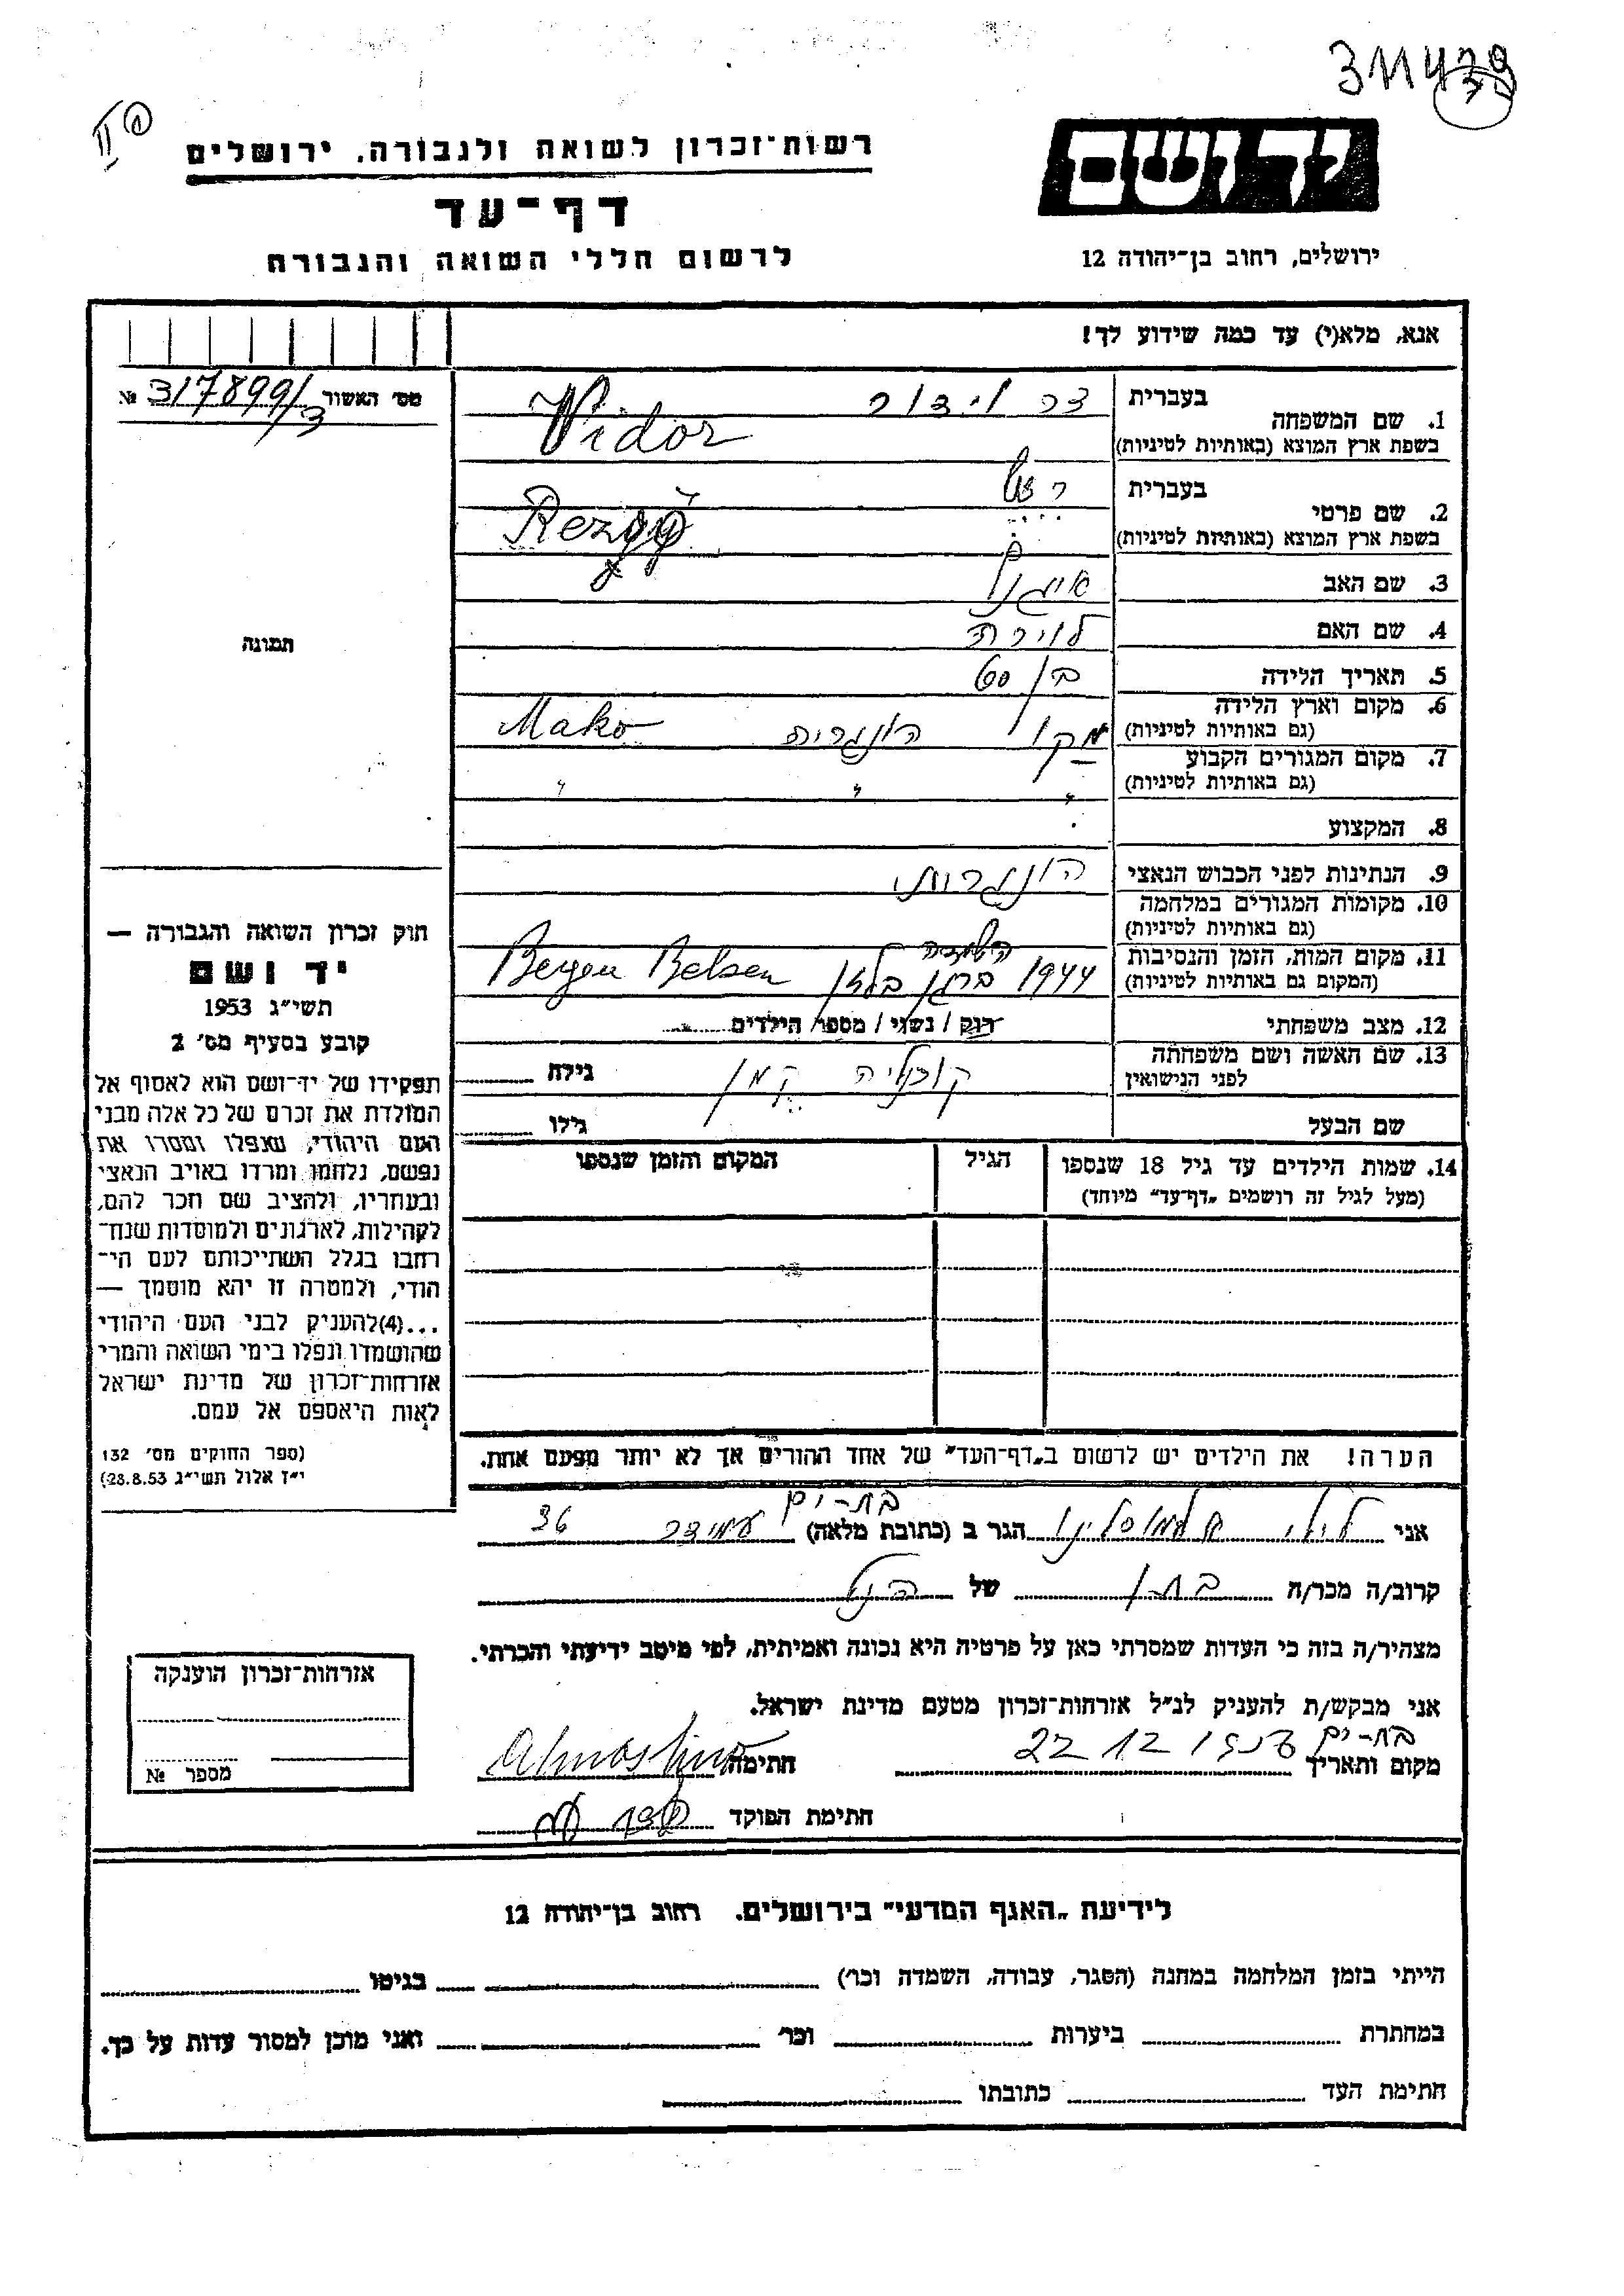 311439
רשות־זכרון לשואה ולגבורה, ירושלים
דף־עד
לרשום חללי השואה והגבורה
יד ושם
ירושלים, רחוב בן־יהודה 12
אנא, מלא(י) עד כמה שידוע לך!
מס׳ האשור 317899/3 №
תמונה
1. שם המשפחה
בעברית
בשפת ארץ המוצא (באותיות לטיניות)
Vidor
2. שם פרטי
בעברית
בשפת ארץ המוצא (באותיות לטיניות)
3. שם האב
4. שם האם
5. תאריך הלידה
6. מקום וארץ הלידה
(גם באותיות לטיניות)
מקו הונגריה Mako
7. מקום המגורים הקבוע
(גם באותיות לטיניות)
" " "
8. המקצוע
9. הנתינות לפני הכבוש הנאצי הונגרית
10. מקומות המגורים במלחמה
(גם באותיות לטיניות)
11. מקום המות, הזמן והנסיבות
(המקום גם באותיות לטיניות)
1944 ברגן בלזן Bergen Belsen
12. מצב משפחתי רוק / נשוי / מספר הילדים
13. שם האשה ושם משפחתה
לפני הנישואין
גילה
שם הבעל גילו
14. שמות הילדים עד גיל 18 שנספו
(מעל לגיל זה רושמים „דף־עד״ מיוחד)
הגיל
המקום והזמן שנספו
הערה! את הילדים יש לרשום ב„דף־העד״ של אחד ההורים אך לא יותר מפעם אחת.
חוק זכרון השואה והגבורה —
יד ושם
תשי״ג 1953
קובע בסעיף מס׳ 2
תפקידו של יד־ושם הוא לאסוף אל
המולדת את זכרם של כל אלה מבני
העם היהודי, שנפלו ומסרו את
נפשם, נלחמו ומרדו באויב הנאצי
ובעוזריו, ולהציב שם וזכר להם,
לקהילות, לארגונים ולמוסדות שנח־
רבו בגלל השתייכותם לעם הי־
הודי, ולמטרה זו יהא מוסמך —
...(4) להעניק לבני העם היהודי
שהושמדו ונפלו בימי השואה והמרי
אזרחות־זכרון של מדינת ישראל
לאות היאספם אל עמם.
(ספר החוקים מס׳ 132
י״ז אלול תשי״ג 28.8.53)
אני לילי הגר ב (כתובת מלאה) בת־ים עמידר 36
קרוב/ה מכר/ה של הנ״ל
מצהיר/ה בזה כי העדות שמסרתי כאן על פרטיה היא נכונה ואמיתית, לפי מיטב ידיעתי והכרתי.
אני מבקש/ת להעניק לנ״ל אזרחות־זכרון מטעם מדינת ישראל.
מקום ותאריך בת־ים 22 12 חתימה
חתימת הפוקד
אזרחות־זכרון הוענקה
מספר №
לידיעת „האגף המדעי״ בירושלים. רחוב בן־יהודה 12
הייתי בזמן המלחמה במחנה (הסגר, עבודה, השמדה וכו׳) בגיטו
במחתרת ביערות וכו׳ ואני מוכן למסור עדות על כך.
חתימת העד כתובתו